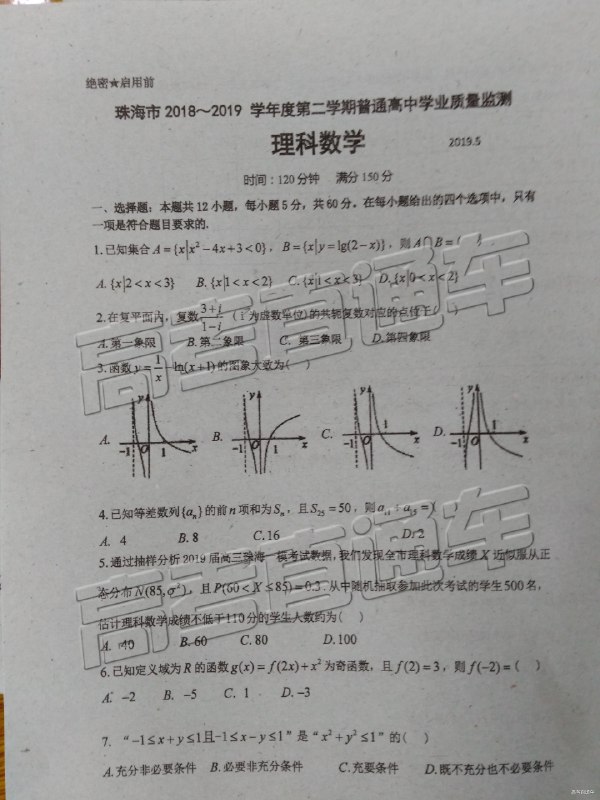 绝密★启用前
珠海市 2018～2019 学年度第二学期普通高中学业质量监测
理科数学
2019.5
时间：120分钟 满分 150 分
一、选择题：本题共 12 小题，每小题 5 分，共 60 分，在每小题给出的四个选项中，只有
一项是符合题目要求的.
1.已知集合 A={x|x²−4x+3<0}，B={x|y=lg(2−x)}，则 A∩B=（ ）
A.{x|2<x<3} B.{x|1<x<2} C.{x|1<x<3} D.{x|0<x<2}
2.在复平面内，复数 (3+i)/(1−i) （i 为虚数单位）的共轭复数对应的点位于（ ）
A.第一象限 B.第二象限 C.第三象限 D.第四象限
3.函数 y=1/x−ln(x+1)的图象大致为( )
A. -1 O 1 x y B. -1 O 1 x y C. -1 O 1 x y D. -1 O 1 x y
4.已知等差数列{aₙ}的前 n 项和为 Sₙ，且 S₂₅=50，则 a₁₁+a₁₅=( )
A. 4 B. 8 C.16 D.2
5.通过抽样分析 2019 届高三珠海一模考试数据，我们发现全市理科数学成绩 X 近似服从正
态分布 N(85,σ²)，且 P(60<X≤85)=0.3.从中随机抽取参加此次考试的学生 500 名，
估计理科数学成绩不低于110分的学生人数约为( )
A. 40 B. 60 C. 80 D.100
6.已知定义域为 R 的函数 g(x)=f(2x)+x² 为奇函数，且 f(2)=3，则 f(−2)=( )
A. −2 B. −5 C. 1 D. −3
7. “−1≤x+y≤1且-1≤x−y≤1”是“x²+y²≤1”的( )
A.充分非必要条件 B.必要非充分条件 C.充要条件 D.既不充分也不必要条件
高考直通车
高考直通车